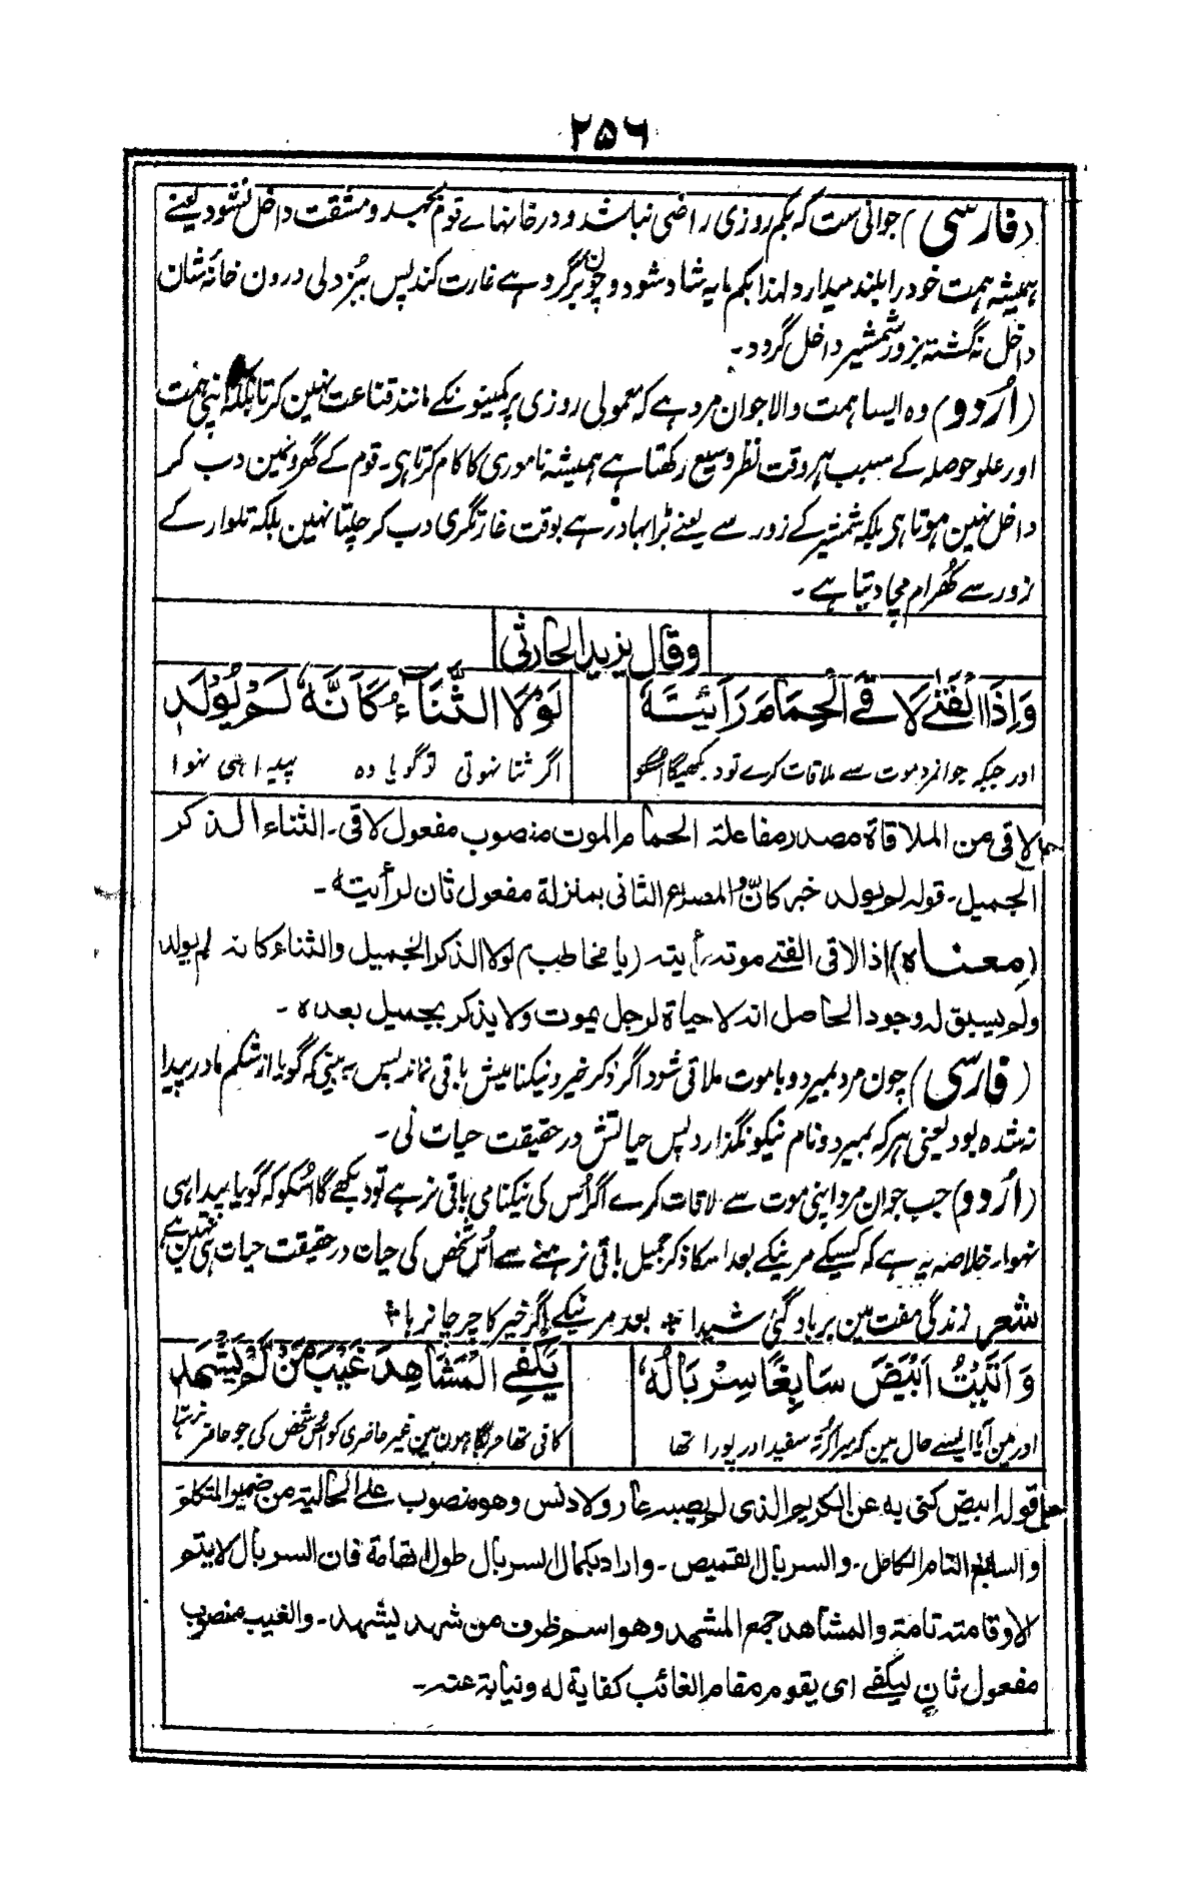 ۲۵۶
(فارسی) جوانی ست که بکم روزی راضی نباشد و در خانہاے قوم بجہد و مشقت داخل نشود یعنے
ہمیشہ ہمت خود را بلند میدارد لہذا بکم مایہ شاد شود و چون برگروہے غارت کند پس ببُزدلی درون خانۂ شان
داخل نگشتہ بزور شمشیر داخل گردد۔
(اُردو) وہ ایسا ہمت والا جوان مرد ہے کہ معمولی روزی پر کمینونکے مانند قناعت نہین کرتا بلکہ اپنی ہمت
اور علو حوصلہ کے سبب ہر وقت نظر وسیع رکھتا ہے ہمیشہ ناموری کا کام کرتا ہی۔ قوم کے گھرونمین دب کر
داخل نہین ہوتا ہی بلکہ شمشیر کے زور سے یعنے بڑا بہادر ہے بوقت غارتگری دب کر چلتا نہین بلکہ تلوار کے
زور سے کُھرام مچا دیتا ہے۔
وقال یزید الحارثی
وَاِذَا الْفَتٰے لَاقَے الْحِمَامَ رَاَیْتَهٗ لَوْلَا الثَّنَاءُ کَاَنَّهٗ لَمْ یُوْلَدِ
اور جبکہ جوانمرد موت سے ملاقات کرے تو دیکھیگا اُسکو اگر ثنا نہوتی تو گویا وہ پیدا ہی نہوا
لاقی من الملاقاة مصدر مفاعلة الحمام الموت منصوب مفعول لاقی۔ الثناء الذکر
الجمیل۔ قوله لم یولد خبر کأنّ والمصرع الثانی بمنزلة مفعول ثان لرأیته۔
(معناہ) اذا لاقی الفتے موته رأیته (یا مخاطب) لولا الذکر الجمیل والثناء کانه لم یولد
ولم یسبق له وجود الحاصل انه لا حیاة لرجل یموت ولا یذکر بجمیل بعده۔
(فارسی) چون مرد بمیرد و با موت ملاقی شود اگر ذکر خیر و نیکنامیش باقی نماند پس بہ بینی کہ گویا از شکم مادر پیدا
نہ شدہ بود یعنی ہر کہ بمیرد و نام نیکو نگذارد پس حیاتش در حقیقت حیات نی۔
(اُردو) جب جوان مرد اپنی موت سے ملاقات کرے اگر اُس کی نیکنامی باقی نرہے تو دیکھے گا اُسکو کہ گویا پیدا ہی
نہوا۔ خلاصہ یہ ہے کہ کسیکے مرنیکے بعد اسکا ذکر جمیل باقی نرہنے سے اُس شخص کی حیات در حقیقت حیات ہی نہین ہے
شعر زندگی مفت مین برباد گئی شیدا ؞ بعد مرنیکے اگر خیر کا چرچا نرہا ؞
وَاَتَیْتُ اَبْیَضَ سَابِغًا سِرْبَالُهٗ یَکْفِے الْمَشَاهِدَ غَیْبَ مَنْ لَمْ یَشْهَدِ
اور مین آیا ایسے حال مین کہ میرا کُرتہ سفید اور پورا تھا کافی تھا مین غیر حاضری کو اُس شخص کی جو حاضر نرہتا
قوله ابیض کنی به عن الکریم الذی لم یصبه عار ولا دنس وهو منصوب علے الحالیة من ضمیر المتکلم
والسابغ التام الکامل۔ والسربال القمیص۔ واراد بکمال السربال طول القامة فان السربال لا یتم
الا وقامته تامة والمشاهد جمع المشهد وهو اسم ظرف من شهد یشهد۔ والغیب منصوب
مفعول ثانٍ لیکفے ای یقوم مقام الغائب کفایة له ونیابة عنه۔